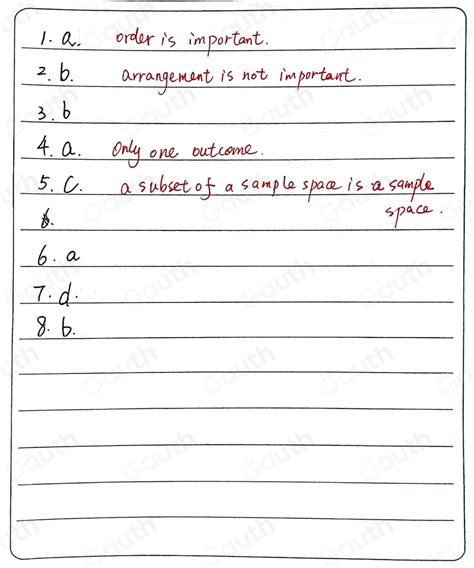 1. a. order is important.
2. b. arrangement is not important.
3. b
4. a. Only one outcome.
5. C. a subset of a sample space is a sample
space.
6.
6. a
7. d.
8. b.